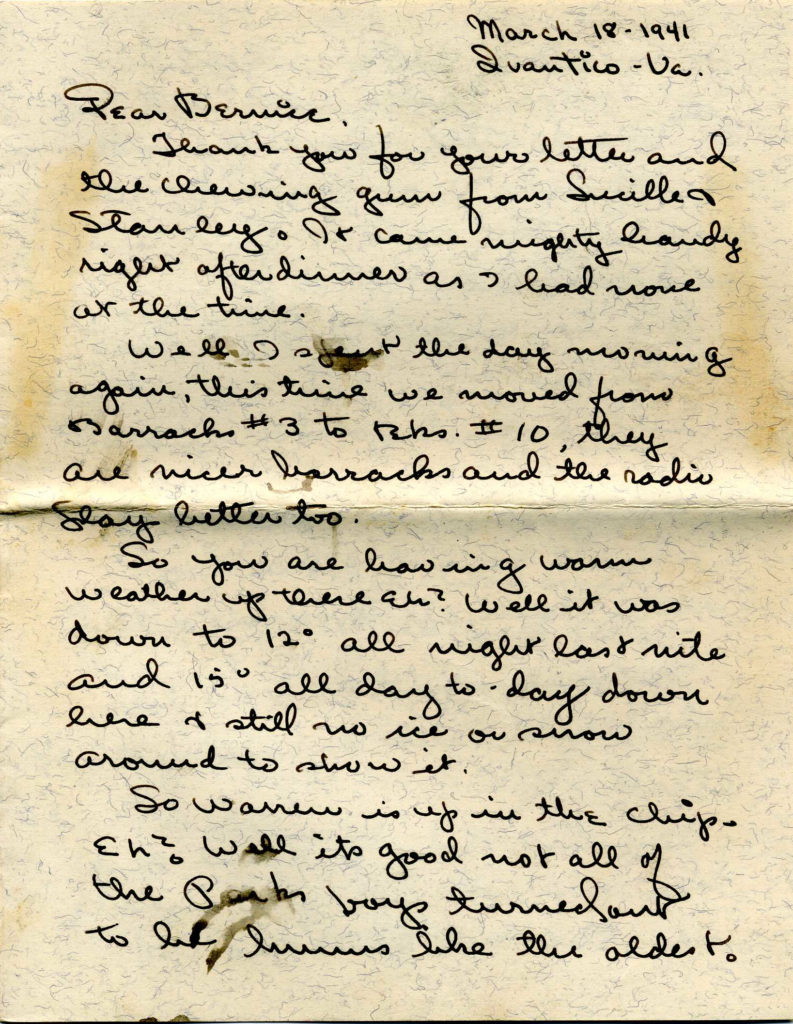 March 18-1941
Quantico-Va.
Dear Bernice,
Thank you for your letter and
the chewing gum from Lucille &
Stanley. It came mighty handy
right after dinner as I had none
at the time.
Well I spent the day moving
again, this time we moved from
Barracks #3 to Bks. #10, they
are nicer barracks and the radio
play better too.
So you are having warm
weather up there Eh? Well it was
down to 12° all night last nite
and 15° all day to-day down
here & still no ice or snow
around to show it.
So Warren is up in the chips-
Eh? Well its good not all of
the Parks boys turned out
to be bums like the oldest.